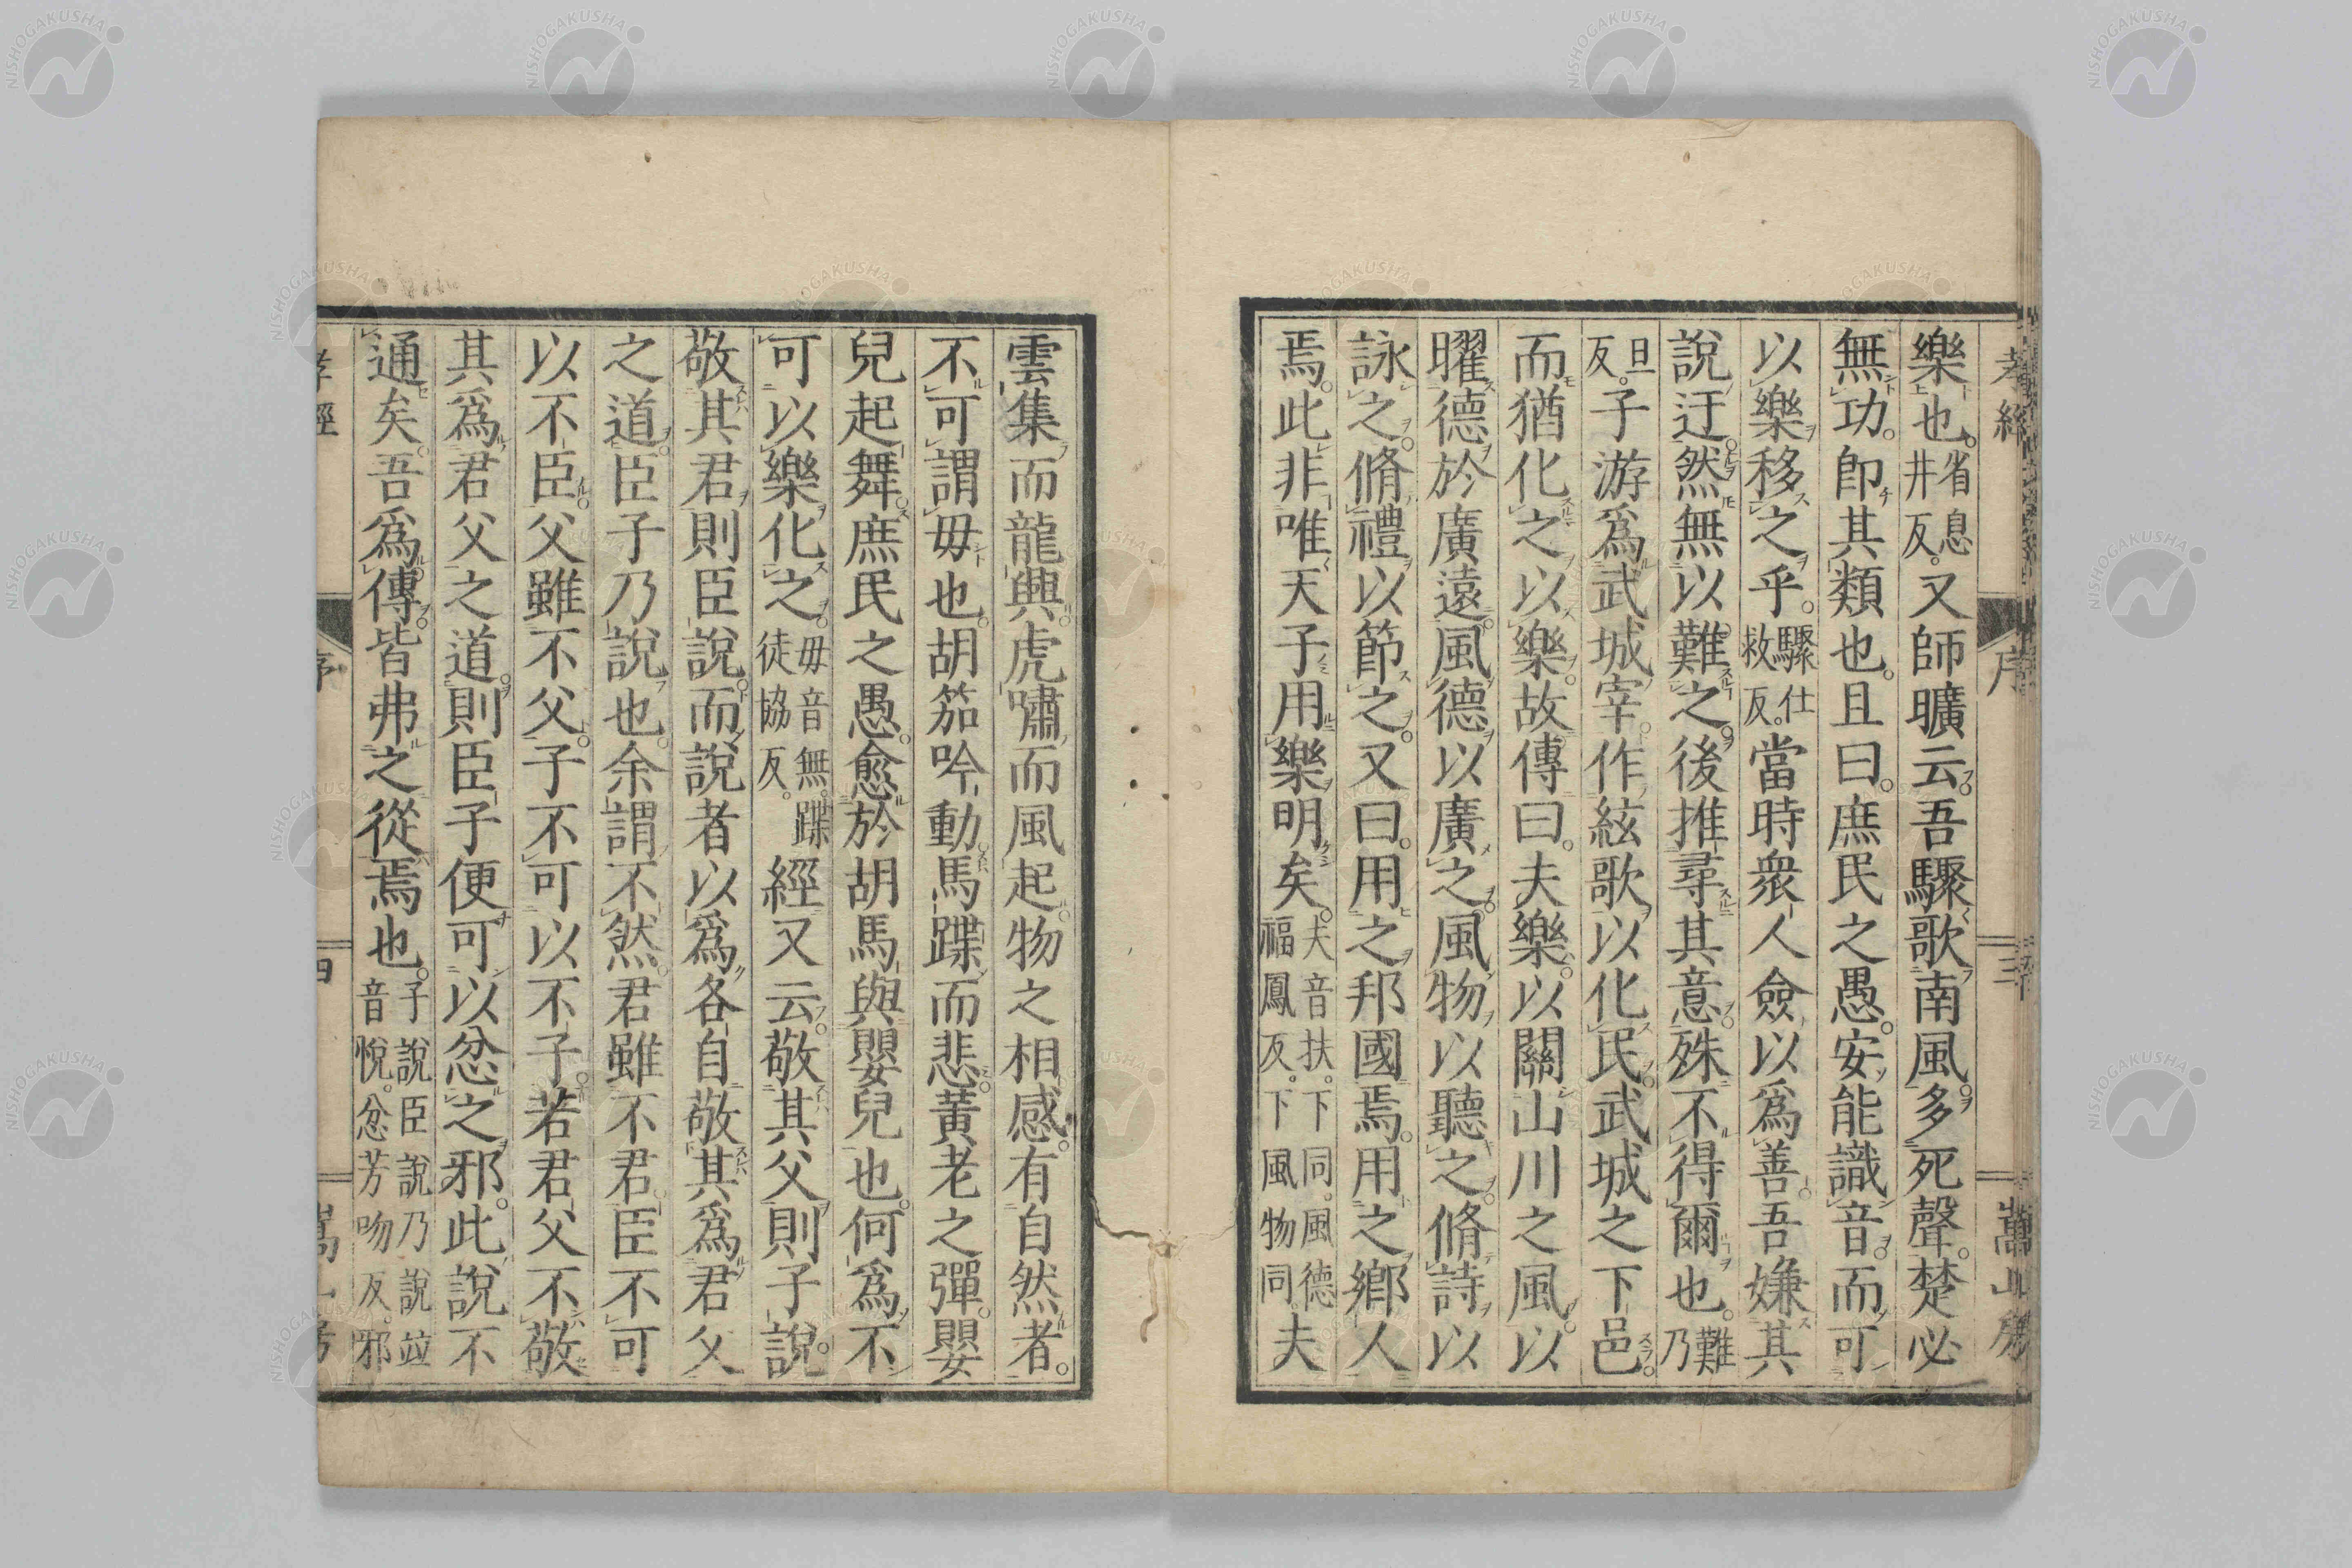 樂也。省息井反。又師曠云。吾驟歌南風。多死聲。楚必
無功。卽其類也。且曰。庶民之愚。安能識音。而可
以樂移之乎。驟仕救反。當時衆人僉以爲善。吾嫌其
說迂。然無以難之。後推尋其意。殊不得爾也。難乃
旦反。子游爲武城宰。作絃歌以化民。武城之下邑。
而猶化之以樂。故傳曰。夫樂。以關山川之風。以
曜德於廣遠。風德以廣之。風物以聽之。脩詩以
詠之。脩禮以節之。又曰。用之邦國焉。用之鄕人
焉。此非唯天子用樂明矣。夫音扶。下同。風德福鳳反。下風物同。夫
雲集而龍興。虎嘯而風起。物之相感。有自然者。
不可謂毋也。胡笳吟動。馬蹀而悲。黃老之彈。嬰
兒起舞。庶民之愚。愈於胡馬與嬰兒也。何爲不
可以樂化之。毋音無。蹀徒協反。經又云。敬其父則子說。
敬其君則臣說。而說者以爲各自敬其爲君父
之道。臣子乃說也。余謂不然。君雖不君。臣不可
以不臣。父雖不父。子不可以不子。若君父不敬
其爲君父之道。則臣子便可以忿之邪。此說不
通矣。吾爲傳。皆弗之從焉也。子說臣說乃說竝音悅。忿芳吻反。邪
孝經
序
三
孝經
序
四
NISHOGAKUSHA